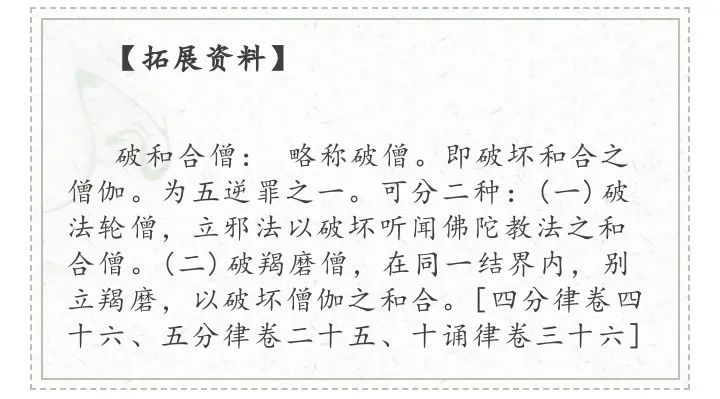 【拓展资料】
破和合僧： 略称破僧。即破坏和合之
僧伽。为五逆罪之一。可分二种：(一)破
法轮僧，立邪法以破坏听闻佛陀教法之和
合僧。(二)破羯磨僧，在同一结界内，别
立羯磨，以破坏僧伽之和合。[四分律卷四
十六、五分律卷二十五、十诵律卷三十六]